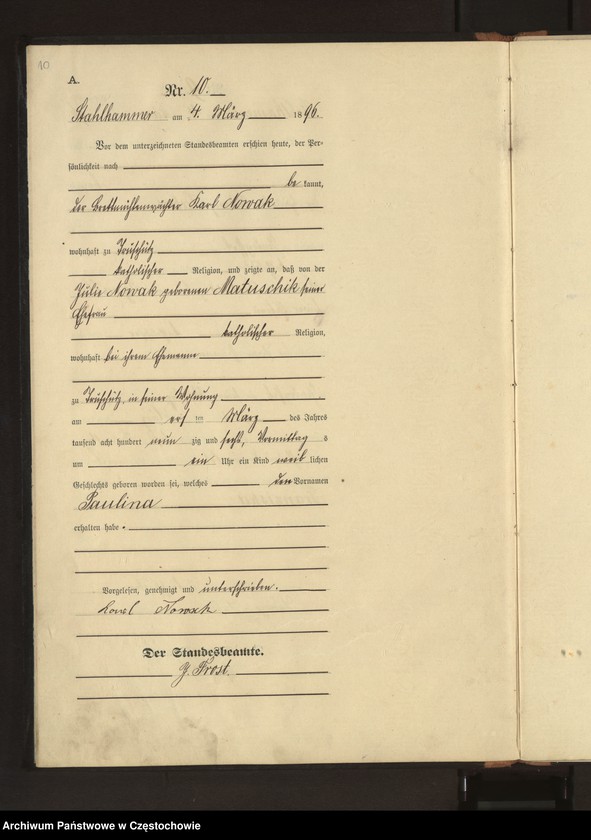 10
A.
Nr. 10.
Stahlhammer am 4. März 1896.
Vor dem unterzeichneten Standesbeamten erschien heute, der Per-
sönlichkeit nach
be kannt,
der Brettmühlenwächter Karl Nowak
wohnhaft zu Truschütz
katholischer Religion, und zeigte an, daß von der
Julie Nowak geborenen Matuschik seiner
Ehefrau
katholischer Religion,
wohnhaft bei ihrem Ehemanne
zu Truschütz, in seiner Wohnung
am März des Jahres
tausend acht hundert neun zig und sechs, Vormittag s
um ein Uhr ein Kind weib lichen
Geschlechts geboren worden sei, welches den Vornamen
Paulina
erhalten habe.
Vorgelesen, genehmigt und unterschrieben.
Karl Nowak
Der Standesbeamte.
Frost.
Archiwum Państwowe w Częstochowie